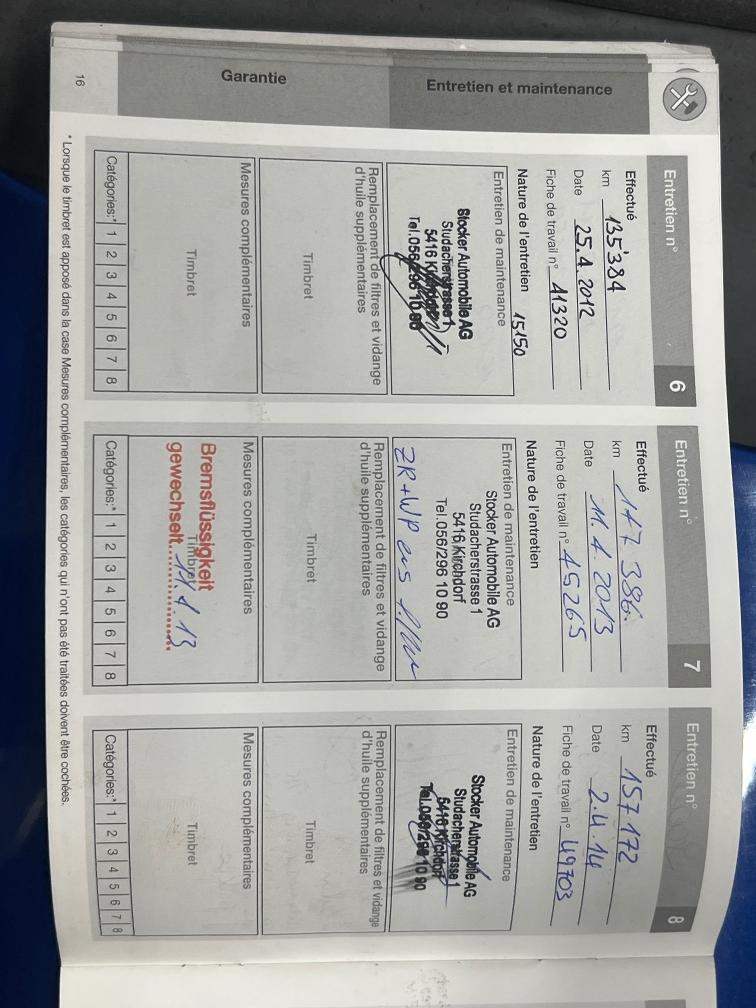 Entretien et maintenance
Garantie
16
Entretien n° 6
Effectué
km 135'384
Date 25.4.2012
Fiche de travail n° 41320
Nature de l'entretien 15150
Entretien de maintenance
Stocker Automobile AG
Studacherstrasse 1
5416 Kirchdorf
Tel.056/296 10 90
Remplacement de filtres et vidange
d'huile supplémentaires
Timbret
Mesures complémentaires
Timbret
Catégories:* 1 2 3 4 5 6 7 8
Entretien n° 7
Effectué
km 147 386.
Date 11. 4. 2013
Fiche de travail n° 45265
Nature de l'entretien
Entretien de maintenance
Stocker Automobile AG
Studacherstrasse 1
5416 Kirchdorf
Tel.056/296 10 90
ZR+WP
Remplacement de filtres et vidange
d'huile supplémentaires
Timbret
Mesures complémentaires
Bremsflüssigkeit
Timbret
gewechselt 11 4 13
Catégories:* 1 2 3 4 5 6 7 8
Entretien n° 8
Effectué
km 157172
Date 2.4.14
Fiche de travail n° 49703
Nature de l'entretien
Entretien de maintenance
Stocker Automobile AG
Studacherstrasse 1
5416 Kirchdorf
Tel.056/296 10 90
Remplacement de filtres et vidange
d'huile supplémentaires
Timbret
Mesures complémentaires
Timbret
Catégories:* 1 2 3 4 5 6 7 8
* Lorsque le timbret est apposé dans la case Mesures complémentaires, les catégories qui n'ont pas été traitées doivent être cochées.